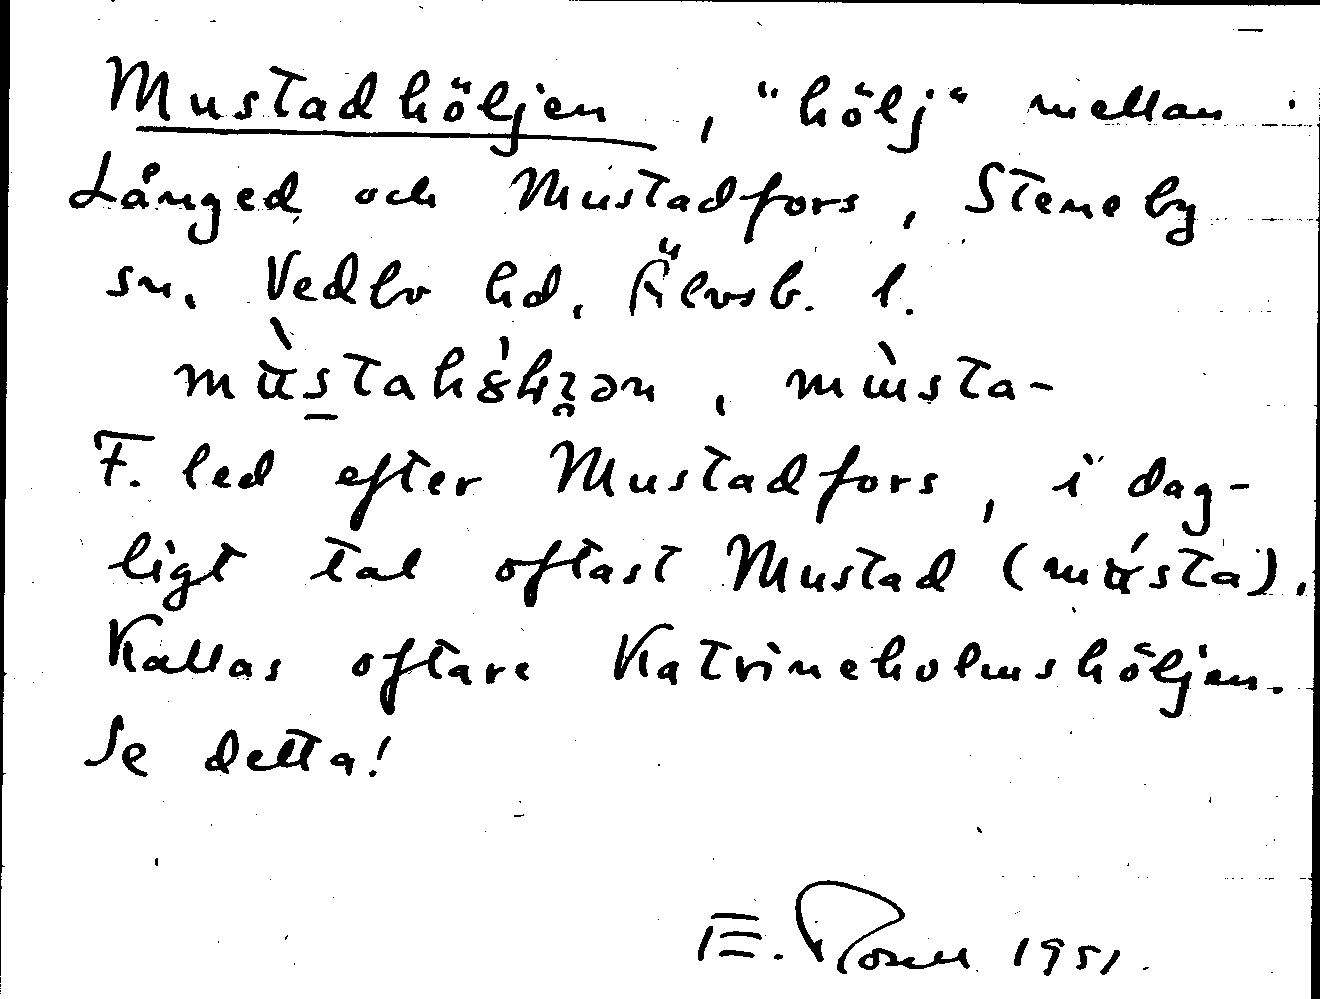 Mustadhöljen, "hölj" mellan
Långed och Mustadfors, Steneby
sn, Vedbo hd, Älvsb. l.
F. led efter Mustadfors, i dag-
ligt tal oftast Mustad
Kallas oftare Katrineholmshöljen.
Se detta!
E. Rosell 1951.